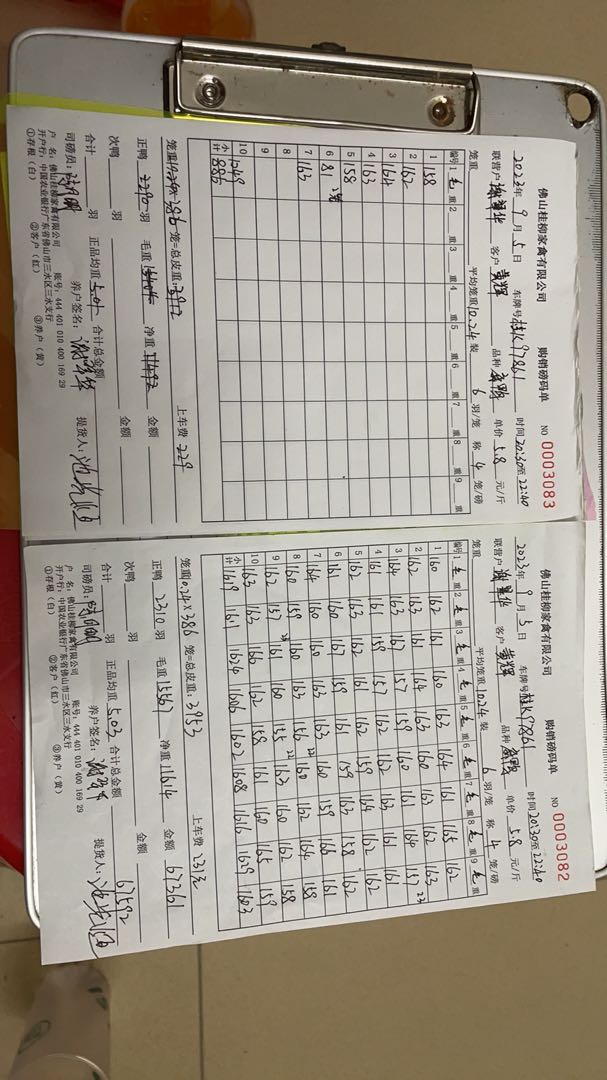 佛山桂柳家禽有限公司 购销磅码单 NO 0003083
2023年9月5日 车牌号桂K97861 时间20:30至22:40
联营户 客户 黄辉 品种 单价5.8元/斤
笼重 平均笼重10.24 装6羽/笼 称4笼/磅
编号 1毛重 2重 3重 4重 5重 6重 7重 8重 9重
1 158
2 162
3 164
4 163
5 158
6 81
7 163
8
9
10 1049
小计 885
笼=总皮重: 3912 上车费 229
正鸭 2290羽 毛重 净重 11492 金额
次鸭 羽 金额
合计 羽 正品均重 5.01 合计总金额
司磅员: 养户签名: 提货人:
户 名: 佛山桂柳家禽有限公司 账号: 444 401 010 400 169 29
开户行: 中国农业银行广东省佛山市三水区三水支行
①存根(白) ②客户(红) ③养户(黄)
佛山桂柳家禽有限公司 购销磅码单 NO 0003082
2023年9月5日 车牌号桂K97861 时间20:30至22:40
联营户 客户 黄辉 品种 单价5.8元/斤
笼重 平均笼重10.24 装6羽/笼 称4笼/磅
编号 1毛重 2毛重 3毛重 4毛重 5毛重 6毛重 7毛重 8毛重 9毛重
1 160 162 161 160 164 161 165 162
2 162 163 161 164 163 160 163 162 163
3 164 163 167 157 159 160 161 164 157 23
4 161 161 159 157 162 162 163 161 161
5 162 163 162 161 162 159 164 162 162
6 161 160 167 159 161 159 163 158 162
7 164 160 160 163 163 160 159 166 161
8 160 159 160 163 156 22 163 162 164 158
9 162 157 161 160 155 163 160 162 158
10 163 163 160 162 158 161 160 165 159
小计 1619 1611 1624 1606 1602 1608 1616 1629 1603
笼重10.24×386笼=总皮重: 3953 上车费 231元
正鸭 2310羽 毛重 15567 净重 11614 金额 67361
次鸭 羽 金额 67592
合计 羽 正品均重 5.03 合计总金额
司磅员: 养户签名: 提货人:
户 名: 佛山桂柳家禽有限公司 账号: 444 401 010 400 169 29
开户行: 中国农业银行广东省佛山市三水区三水支行
①存根(白) ②客户(红) ③养户(黄)